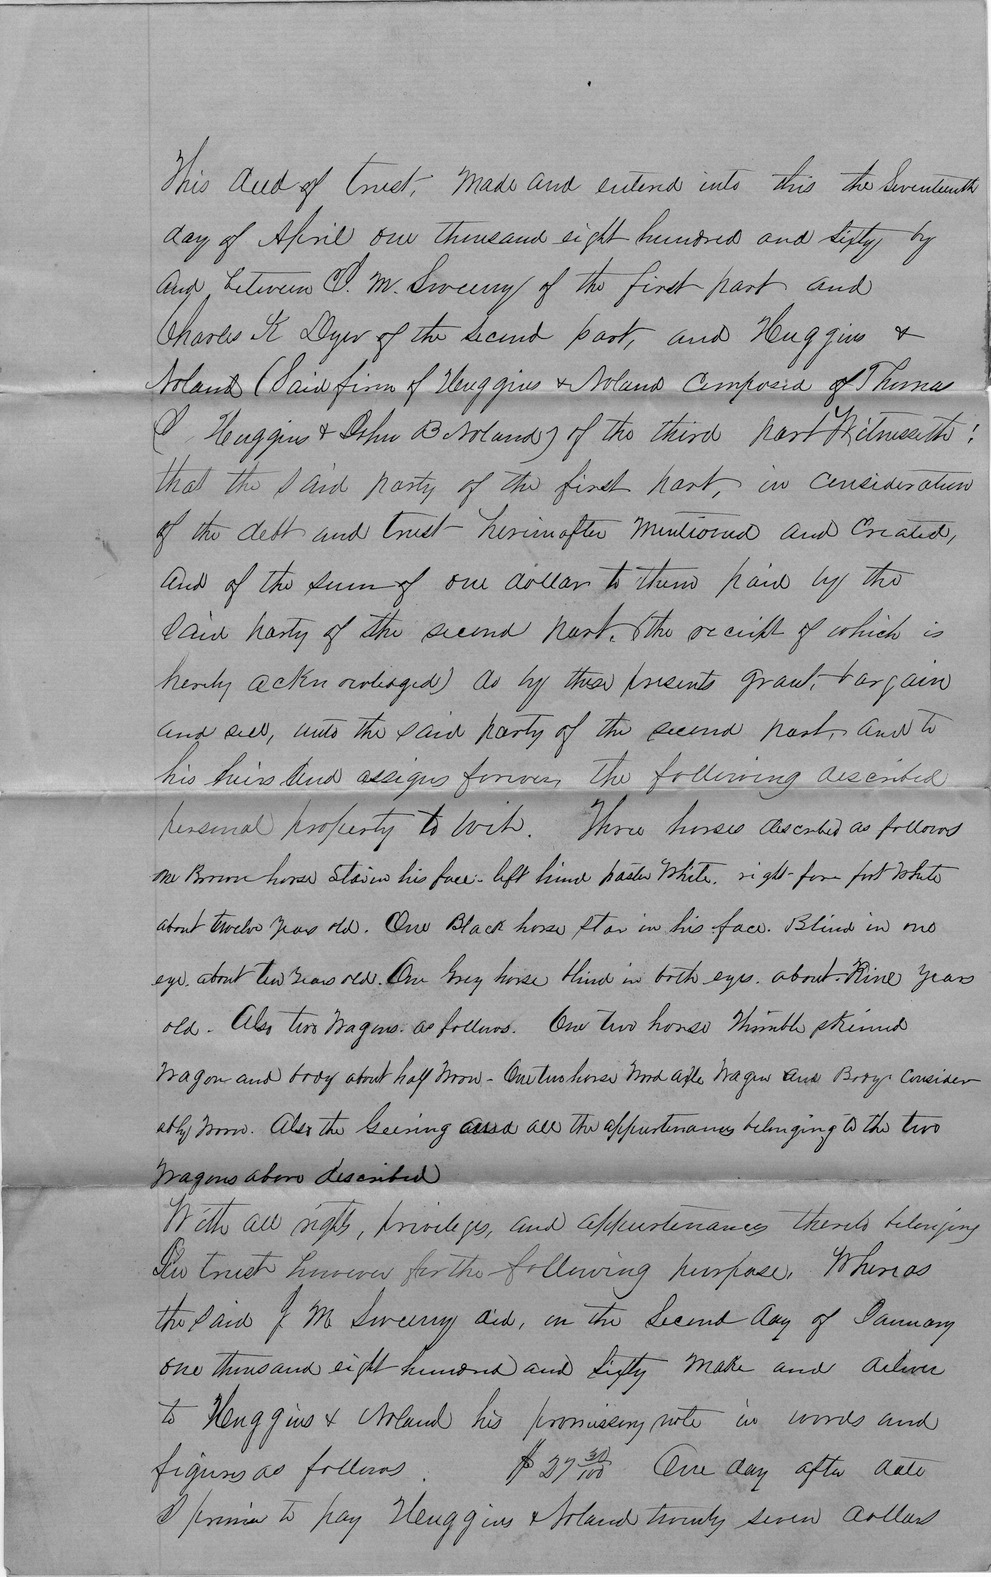 This deed of trust, made and entered into this the Seventeenth
day of April one thousand eight hundred and sixty by
and between J. M. Sweeny of the first part and
Charles K Dyer of the second part, and Huggins &
Noland (Said firm of Huggins & Noland composed of Thomas
J Huggins & John B Noland) of the third part Witnesseth:
that the said party of the first part, in consideration
of the debt and trust hereinafter mentioned and created,
and of the sum of one dollar to them paid by the
said party of the second part, (the receipt of which is
hereby acknowledged) do by these presents grant, bargain
and sell, unto the said party of the second part, and to
his heirs and assigns forever, the following described
personal property to wit. Three horses described as follows
one Brown horse Star in his face - left hind paster White. right fore foot White
about twelve years old. One Black horse star in his face. Blind in one
eye. about ten years old. One Grey horse blind in both eyes. about Nine years
old. Also two Wagons. as follows. One two horse Thimble skeined
Wagon and body about half worn - One two horse Wood axle Wagon and Body consider
ably worn. Also the Geering and all the appurtenances belonging to the two
Wagons above described
With all rights, privileges, and appurtenances thereto belonging
In trust however for the following purpose, Whereas
the said J M Sweeny did, on the Second day of January
one thousand eight hundred and sixty make and deliver
to Huggins & Noland his promissory note in words and
figures as follows. $27 30/100 One day after date
I promise to pay Huggins & Noland twenty seven dollars